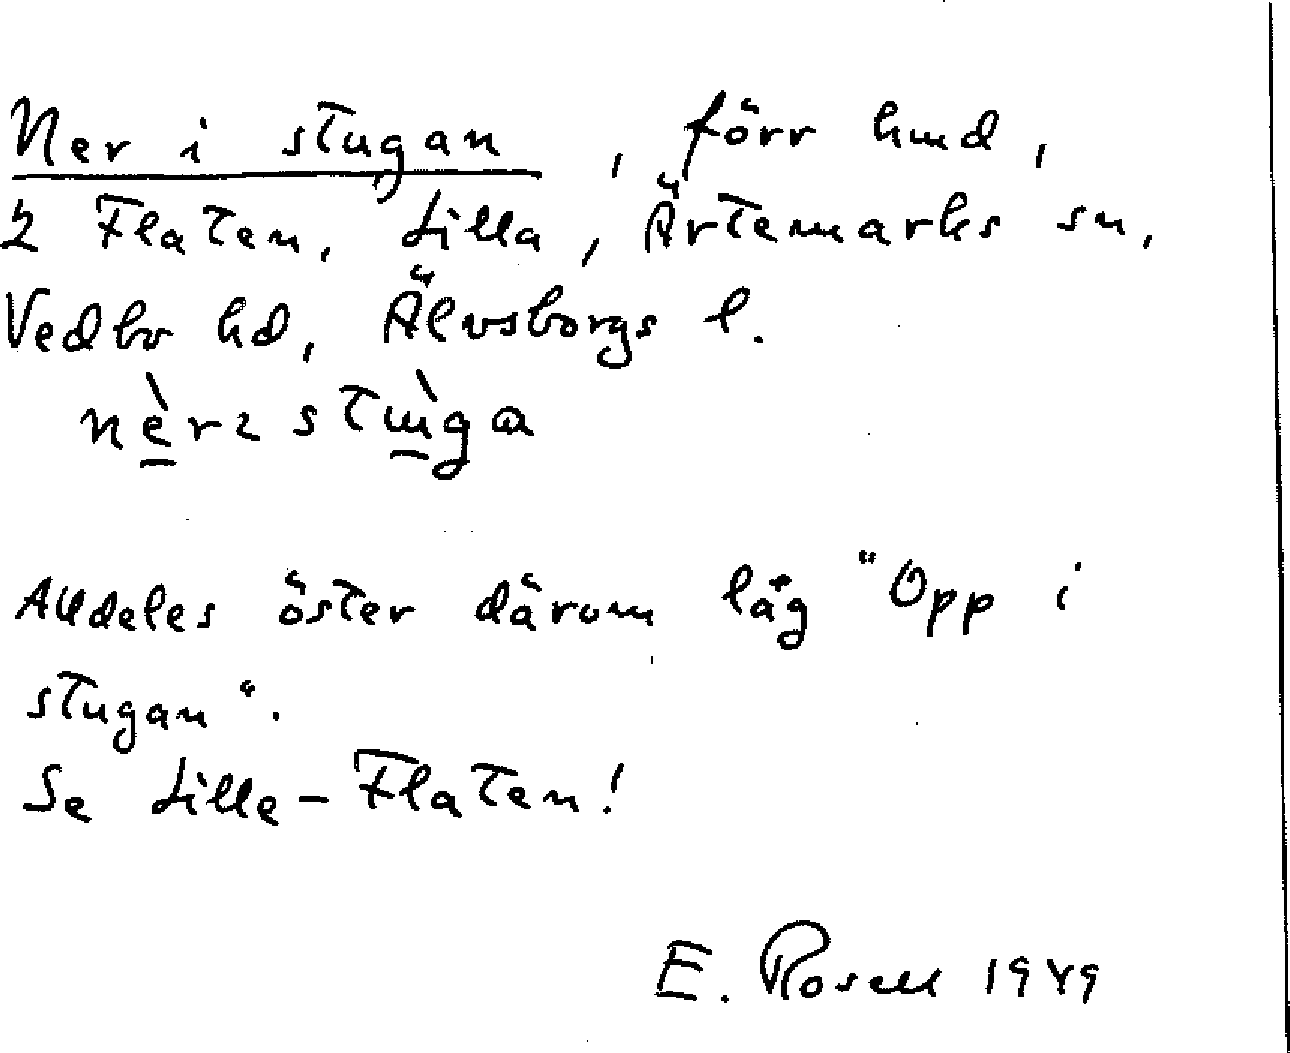 Ner i stugan, förr hmd,
2 Flaten, Lilla, Ärtemarks sn,
Vedbo hd, Älvsborgs l.
Alldeles öster därom låg "Opp i
stugan".
Se Lille-Flaten!
E. Rosell 1949